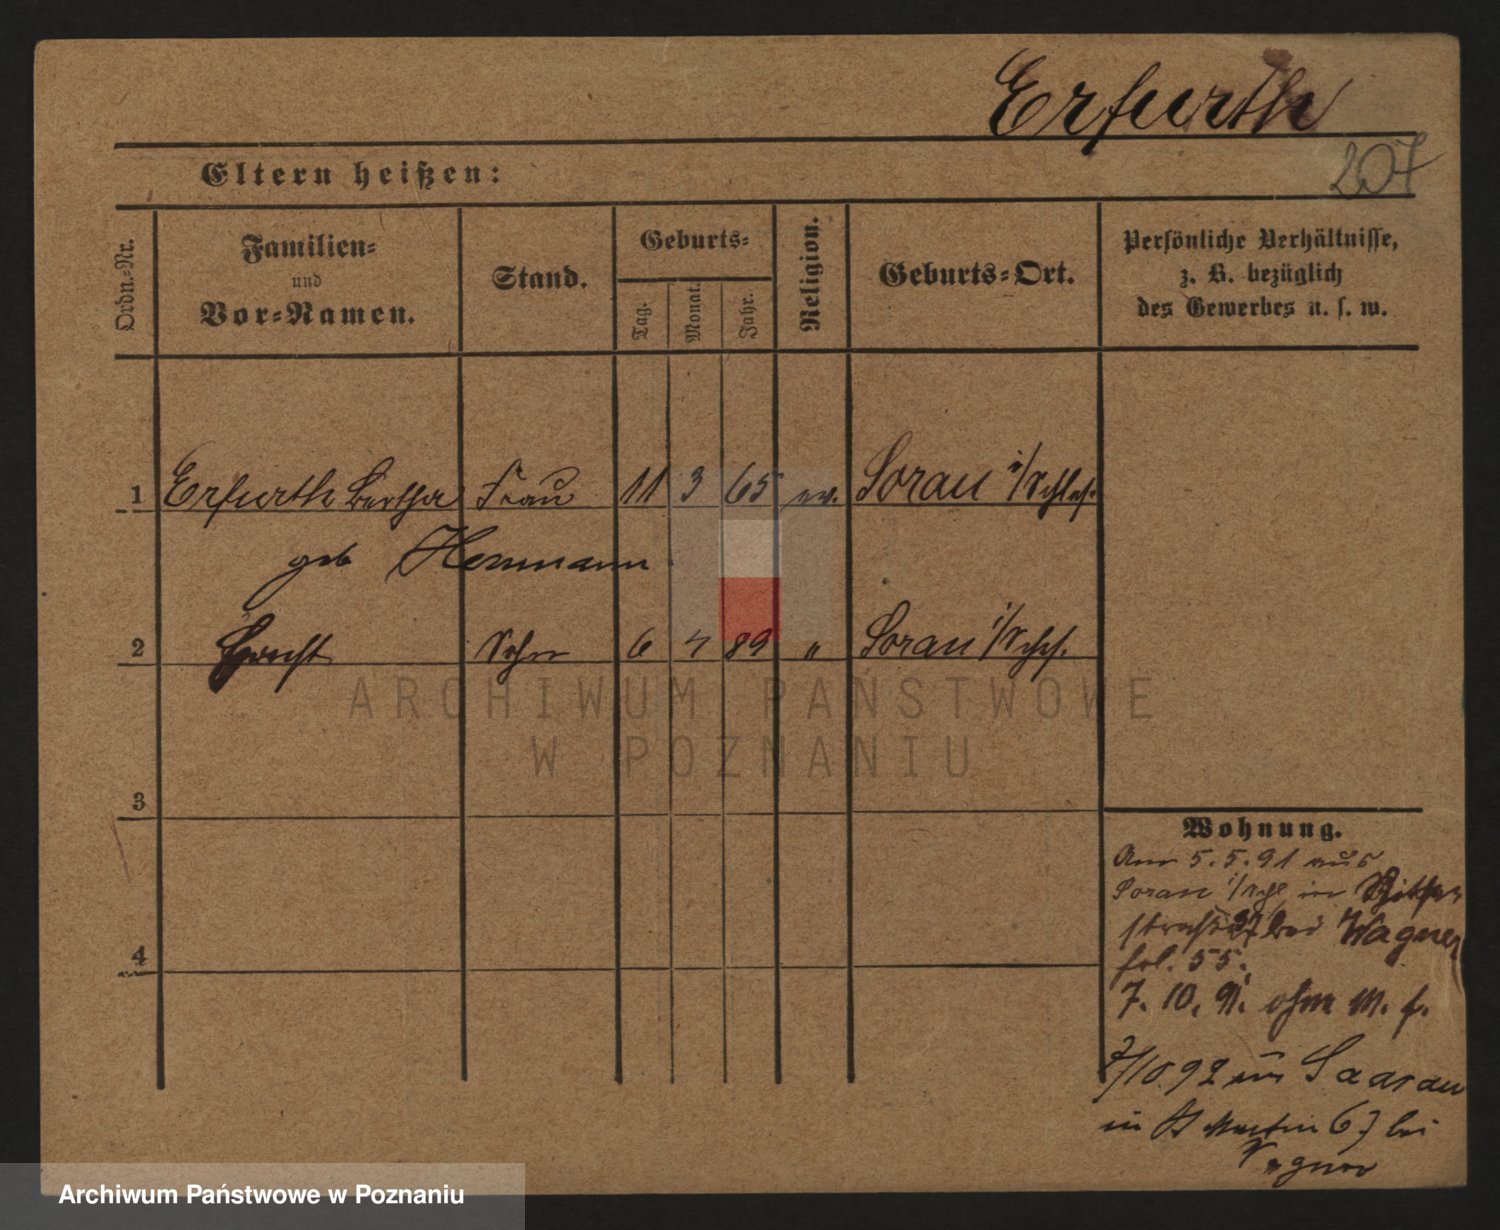 Erfurth
207
Eltern heißen:
Ordn.-Nr.
Familien-
und
Vor-Namen.
Stand.
Geburts-
Tag.
Monat.
Jahr.
Religion.
Geburts-Ort.
Persönliche Verhältnisse,
z. B. bezüglich
des Gewerbes u. s. w.
1 Erfurth Bertha Frau 11 3 65 ev. Sorau i/Schles.
geb Hermann
2 Sohn 6 4 89 " Sorau i/Schl.
ARCHIWUM PAŃSTWOWE
W POZNANIU
3
4
Wohnung.
Am 5.5.91 aus
Sorau i/Schl in
bei Wagner
fol. 55.
7. 10. 91. ohne
7/10 92 Saarau
in St Martin 67 bei
Wagner
Archiwum Państwowe w Poznaniu